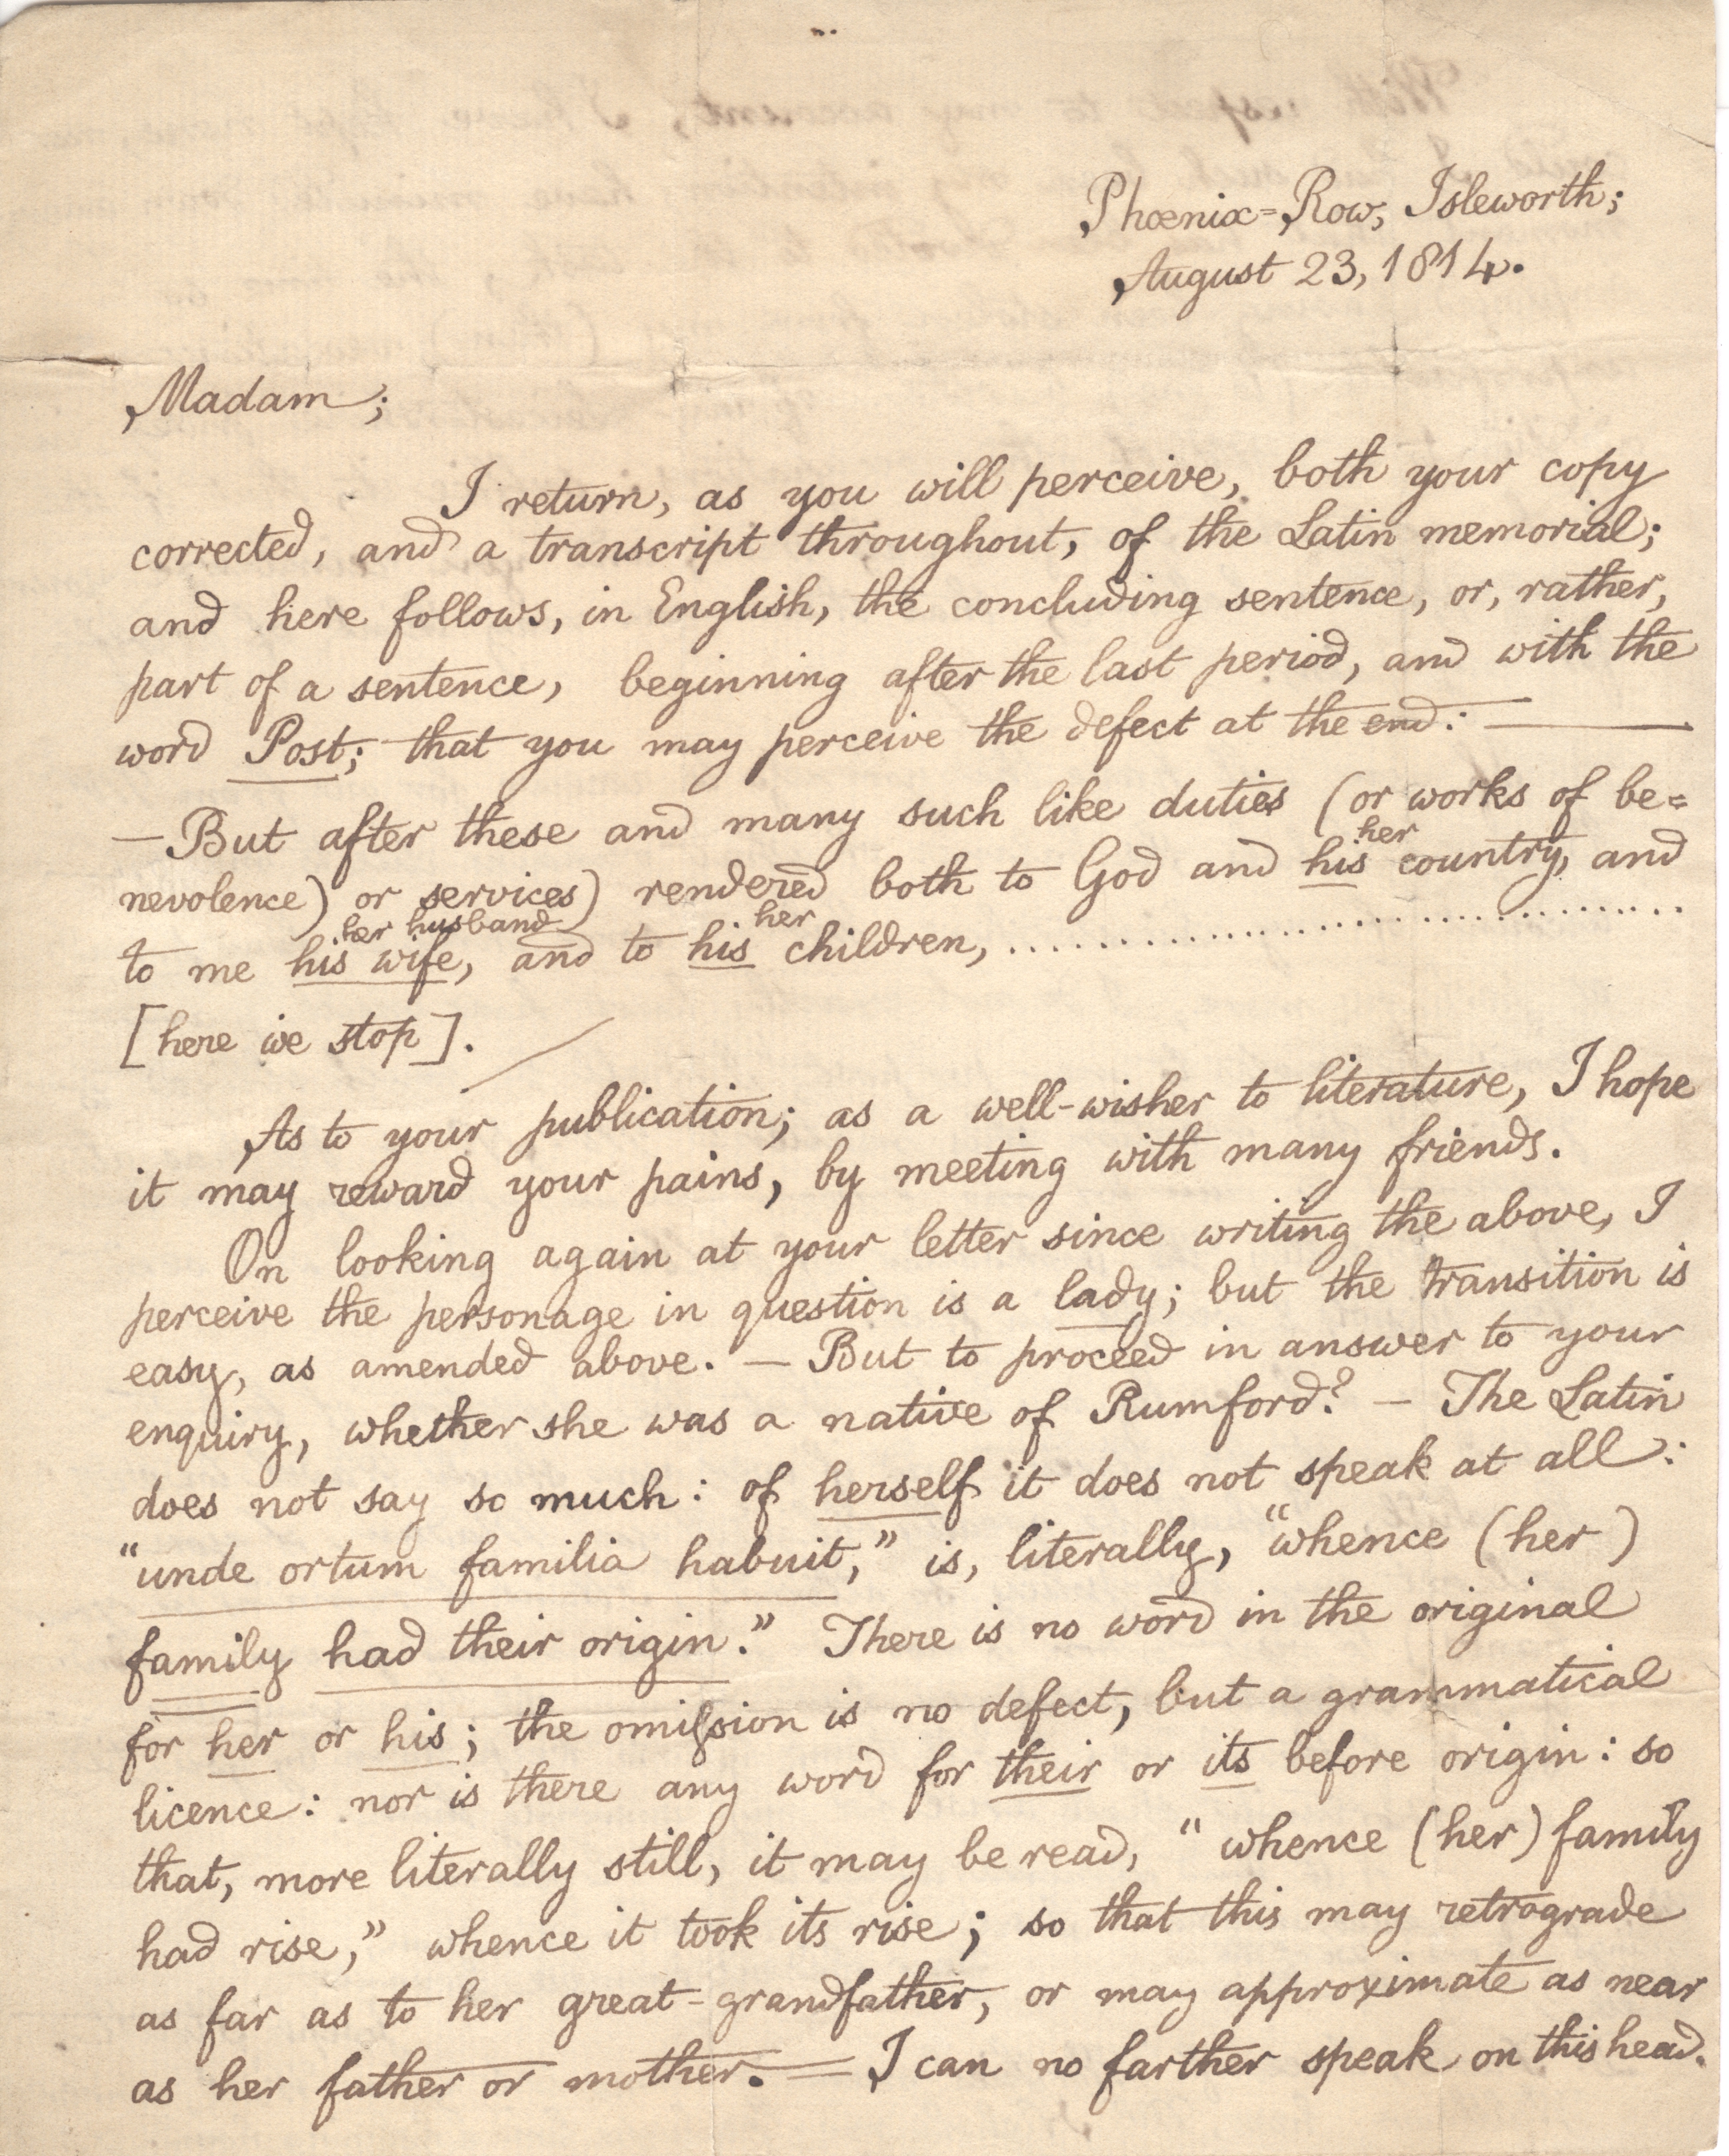 Phœnix=Row, Isleworth;
August 23, 1814.
Madam;
I return, as you will perceive, both your copy
corrected, and a transcript throughout, of the Latin memorial;
and here follows, in English, the concluding sentence, or, rather,
part of a sentence, beginning after the last period, and with the
word Post; that you may perceive the defect at the end: —
—But after these and many such like duties (or works of be=
her
nevolence) or services) rendered both to God and his country, and
her husband her
to me his wife, and to his children, ..............................
[here we stop].
As to your publication; as a well-wisher to literature, I hope
it may reward your pains, by meeting with many friends.
On looking again at your letter since writing the above, I
perceive the personage in question is a lady; but the transition is
easy, as amended above. — But to proceed in answer to your
enquiry, whether she was a native of Rumford? — The Latin
does not say so much: of herself it does not speak at all:
"unde ortum familia habuit," is, literally, "whence (her)
family had their origin." There is no word in the original
for her or his; the omiſsion is no defect, but a grammatical
licence: nor is there any word for their or its before origin: so
that, more literally still, it may be read, "whence (her) family
had rise," whence it took its rise; so that this may retrograde
as far as to her great-grandfather, or may approximate as near
as her father or mother. = I can no farther speak on this head.